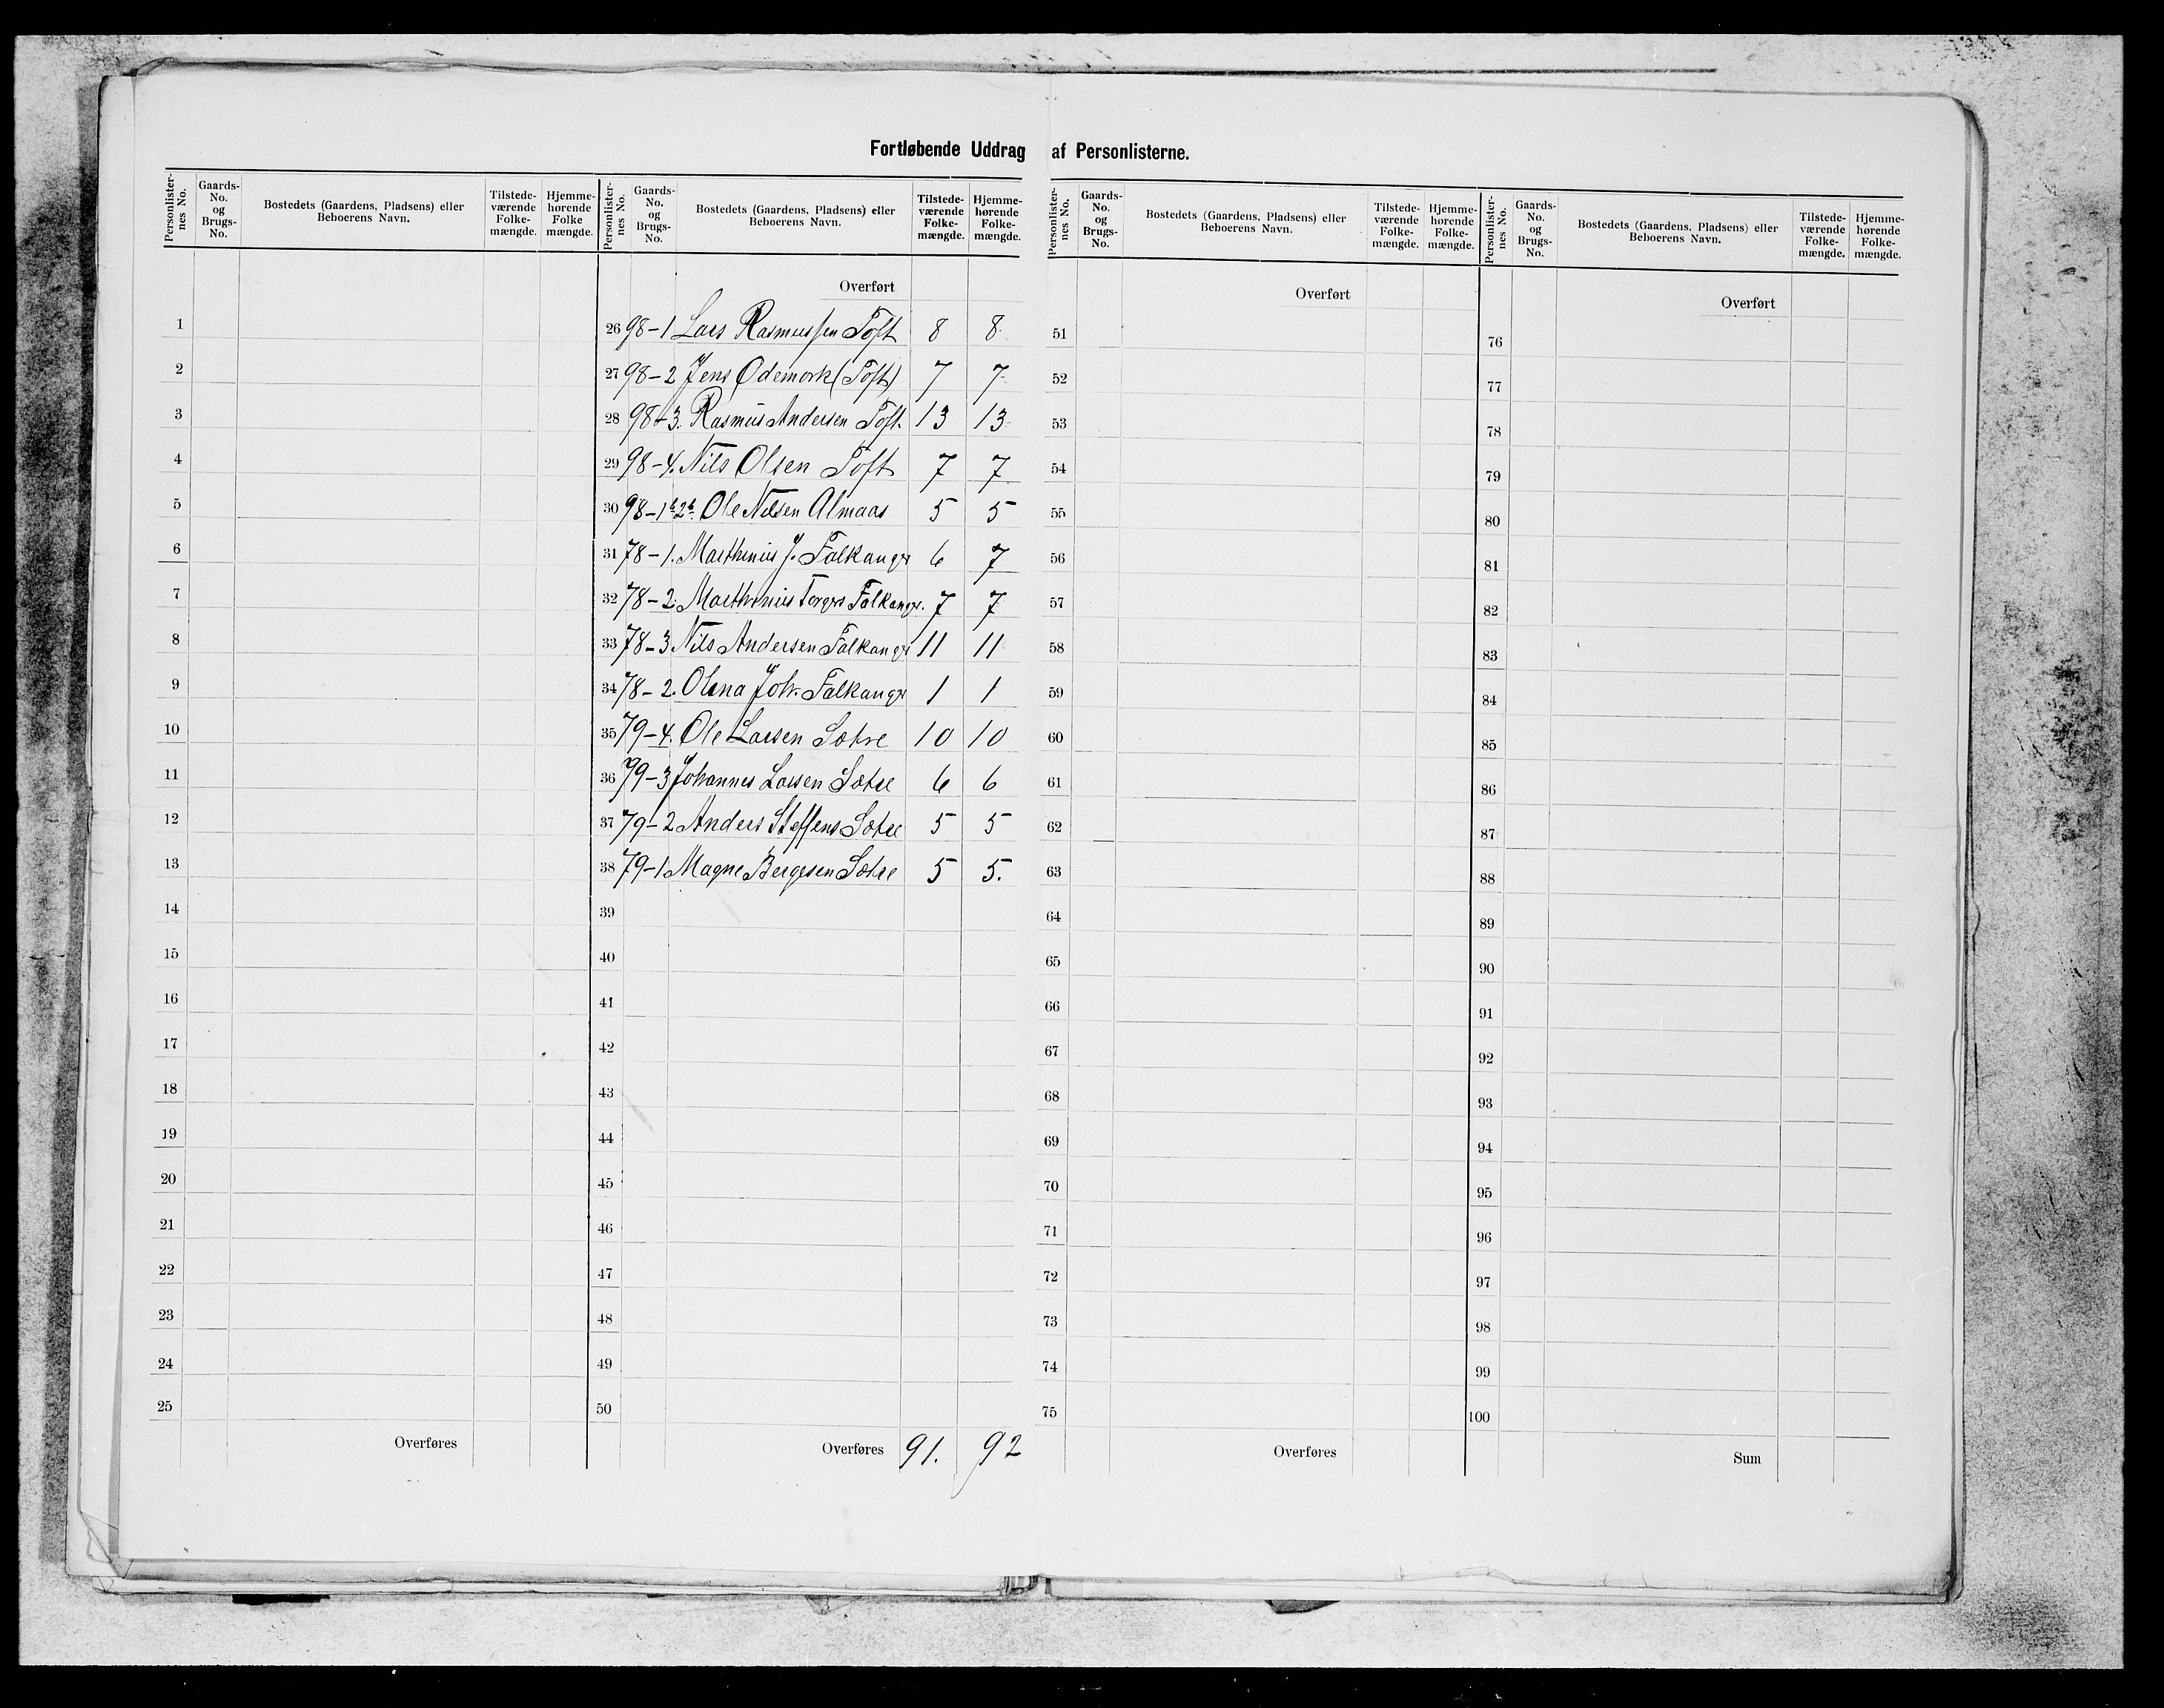 Fortløbende Uddrag af Personlisterne.
Personlister-nes No. Gaards-No. og Brugs-No. Bostedets (Gaardens, Pladsens) eller Beboerens Navn. Tilstede-værende Folke-mængde. Hjemme-hørende Folke mængde.
Personlister-nes No. Gaards-No. og Brugs-No. Bostedets (Gaardens, Pladsens) eller Beboerens Navn. Tilstede-værende Folke-mængde. Hjemme-hørende Folke-mængde.
Personlister-nes No. Gaards-No. og Brugs-No. Bostedets (Gaardens, Pladsens) eller Beboerens Navn. Tilstede-værende Folke-mængde. Hjemme-hørende Folke-mængde.
Personlister-nes No. Gaards-No. og Brugs-No. Bostedets (Gaardens, Pladsens) eller Beboerens Navn. Tilstede-værende Folke-mængde. Hjemme-hørende Folke-mængde.
1
2
3
4
5
6
7
8
9
10
11
12
13
14
15
16
17
18
19
20
21
22
23
24
25
Overføres
Overført
26 98-1 Lars Rasmussen Toft 8 8
27 98-2 Jens Ødemork (Toft) 7 7
28 98-3. Rasmus Andersen Toft. 13 13
29 98-4. Nils Olsen Toft 7 7
30 98-1b2b. Ole Nilsen Almaas 5 5
31 78-1. Marthinius J. Falkangr 6 7
32 78-2. Marthinius Torgrs Falkangr. 7 7
33 78-3 Nils Andersen Falkangr 11 11
34 78-2. Olena Joh. Falkangr 1 1
35 79-4. Ole Larsen Sætre 10 10
36 79-3 Johannes Larsen Sætre 6 6
37 79-2 Anders Steffens Sætre 5 5
38 79-1 Magne Bergesen Sætre 5 5.
39
40
41
42
43
44
45
46
47
48
49
50
Overføres 91. 92
Overført
51
52
53
54
55
56
57
58
59
60
61
62
63
64
65
66
67
68
69
70
71
72
73
74
75
Overføres
Overført
76
77
78
79
80
81
82
83
84
85
86
87
88
89
90
91
92
93
94
95
96
97
98
99
100
Sum